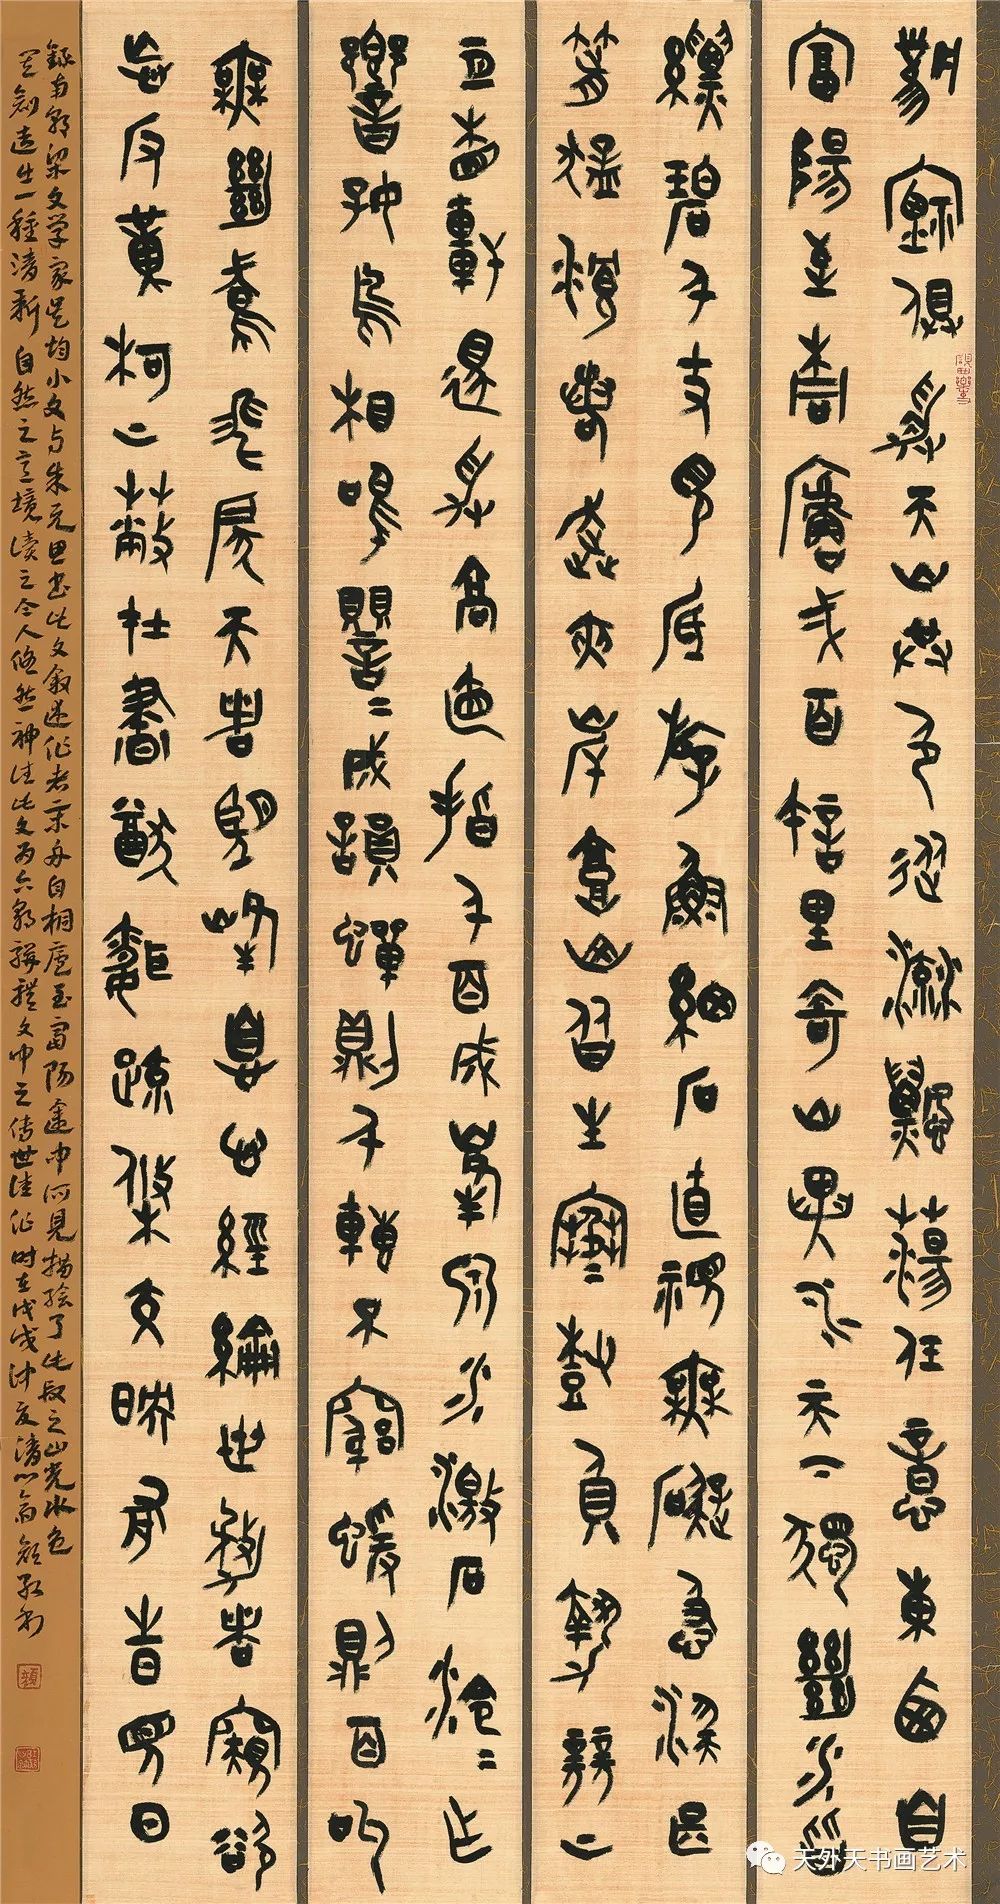 風煙俱淨天山共色從流飄蕩任意東西自
富陽至桐廬弌百許里奇山異水天下獨絕水皆
縹碧千丈見底游魚細石直視無礙急湍甚
箭猛浪若奔夾岸高山皆生寒樹負勢競上
互相軒邈爭高直指千百成峰泉水激石泠二作
響好鳥相鳴嚶二成韻蟬則千轉不窮猨則百叫
無絕鳶飛戾天者望峰息心經綸世務者窺谷
忘反橫柯上蔽在晝猶昏疏條交映有時見日
錄南朝梁文学家吴均小文与朱元思書此文敘述作者乘舟自桐廬至富陽途中所見描繪了此段之山光水色
其創造出一種清新自然之意境讀之令人悠然神往此文为六朝駢體文中之傳世佳作时在戊戌仲夏清心
天外天书画艺术